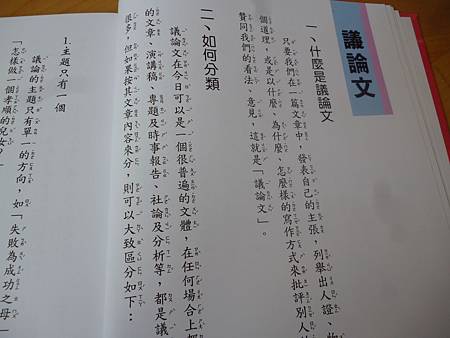 議論文
一、什麼是議論文
只要我們在一篇文章中，發表自己的主張，列舉出人證、物
個道理，或是以什麼、為什麼、怎麼樣的寫作方式來批評別人
贊同我們的看法、意見，這就是「議論文」。
二、如何分類
議論文在今日可以是一個很普遍的文體，在任何場合上
的文章、演講稿、專題及時事報告、社論及分析等，都是議
很多，但如果按其文章內容來分，則可以大致區分如下：
1.主題只有一個
議論的主題只有單一的方向，如「失敗為成功之母
「怎樣做一個孝順的兒女？」